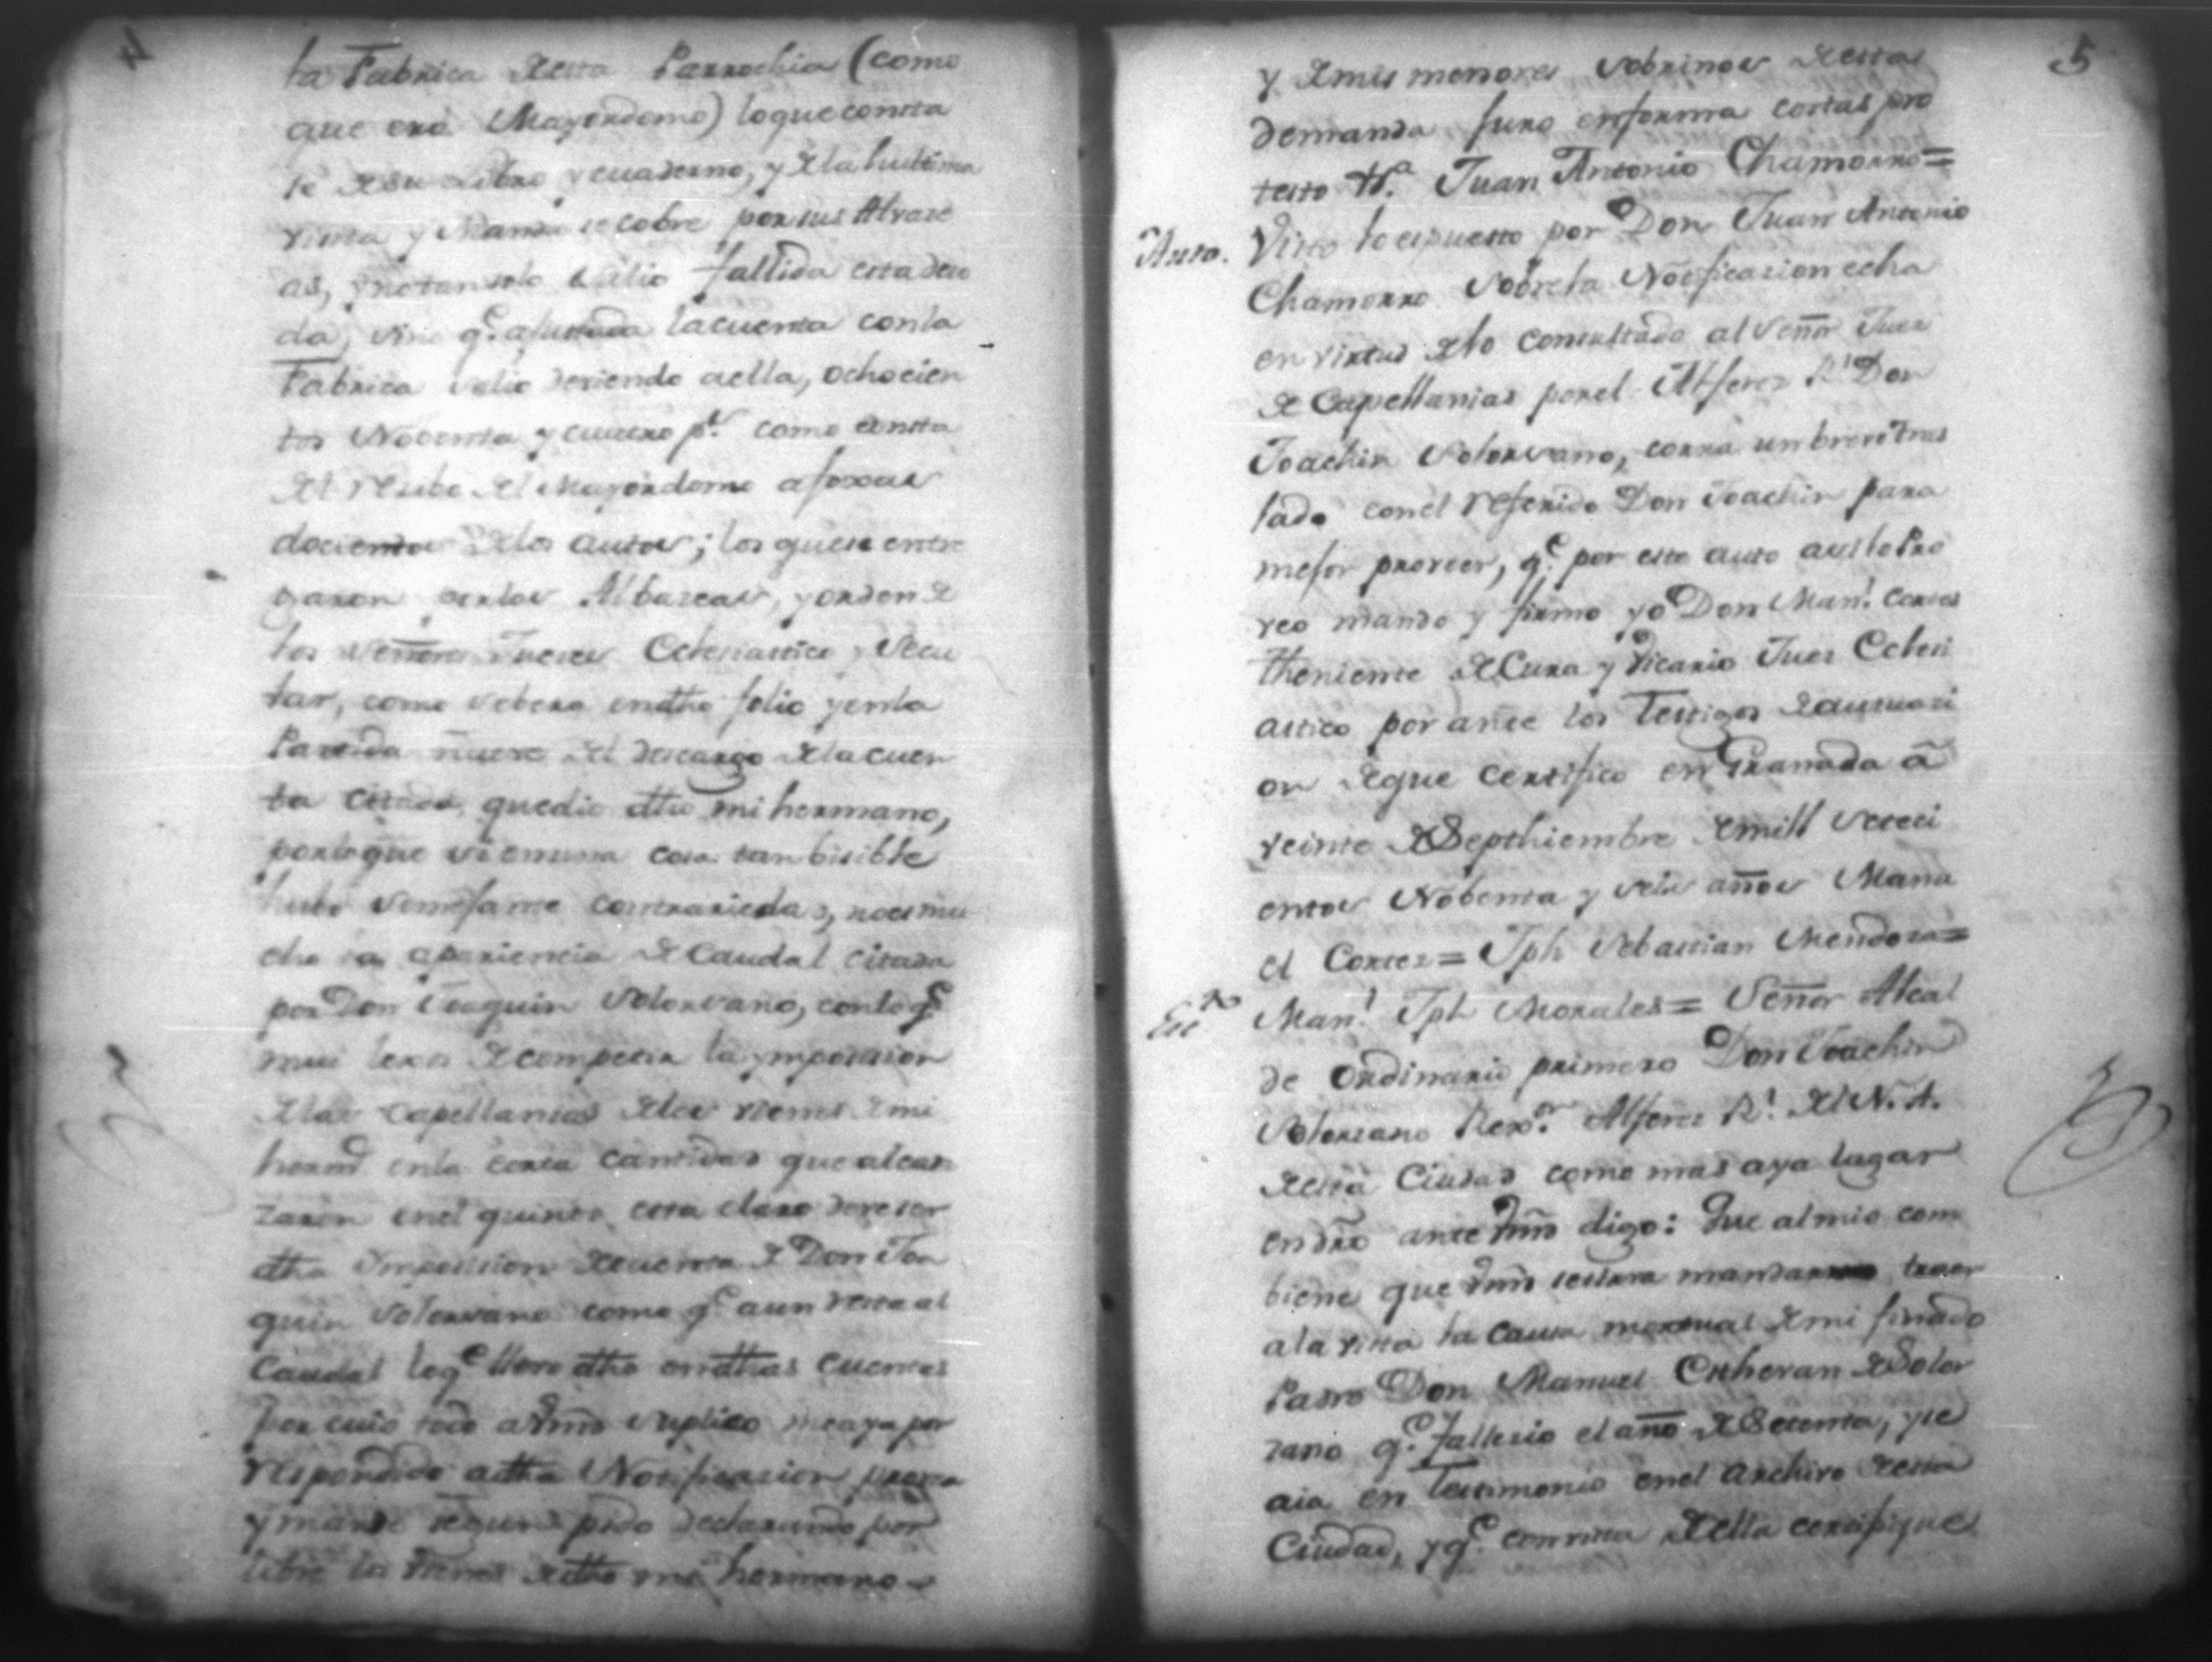 4
la Fabrica desta Parrochia (como
que era Mayordomo) loque consta
de su Libro y cuaderno, y de la hultima
visita y Manda se cobre por sus Alvace
as, y no tan solo salio fallida esta deu
da, sino q.e la cuenta con la
Fabrica salio deviendo aella, ochocien
tos Nobenta y cuatro p.s como consta
del resibo del Mayordomo afoxas
docientos de los autos; los que se entre
garon por los Albaceas, y orden de
los Señores Jueces Eclesiastico y Secu
lar, como se bera en dho folio y en la
Partida nueve del descargo de la cuen
ta citada que dio dho mi hermano,
por lo que si en una cosa tan bisible
hubo semefante contrariedad, no es mu
cho la apariencia de Caudal citada
por Don Joaquin Solorsano, con lo q.e
mui lexos de competir la ymposision
de las Capellanias de los vienes de mi
herm.o en la corta cantidad que alcan
zaron en el quinto esta claro deve ser
dha ymposision de cuenta de Don Joa
quin Solorsano como q.e aun resta al
Caudal loq.e llevo dho en dhas cuentas
Por cuio todo a Vmd suplico me aya por
respondido adha Notificasion provea
y mande segun pido declarando por
libre los vienes de dho mi hermano
5
y de mis menores sobrinos de esta
demanda juro en forma costas pro
testo &.a Juan Antonio Chamorro=
Auto. Visto lo espuesto por Don Juan Antonio
Chamorro sobre la Notificasion echa
en virtud de lo consultado al Señor Juez
de Capellanias por el Alferez R.l Don
Joachin Solorsano, corra un breve tras
lado con el referido Don Joachin para
mejor proveer, q.e por este auto asi lo Pro
veo mando y firmo yo Don Man.l Cortes
theniente de Cura y Vicario Juez Ecleci
astico por ante los Testigos de mi asi
on de que Certifico en Granada á
veinte de Septhiembre de mill seteci
entos Nobenta y seis años Manu
el Cortez= Jph Sebastian Mendoza=
Esc.to Man.l Jph Morales= Señor Alcal
de Ordinario primero Don Joachin
Solorzano Rex.or Alferez R.l del N. A.
de esta Ciudad como mas aya lugar
en dro ante Vmd digo: Que al mio com
biene que Vmd se sirva mandar traer
a la vista la Causa mortual de mi finado
Padre Don Manuel Estevan de Solor
zano q.e fallesio el año de Setenta, y se
aia en Testimonio en el archivo de esta
Ciudad, y q.e con vista de ella certifique